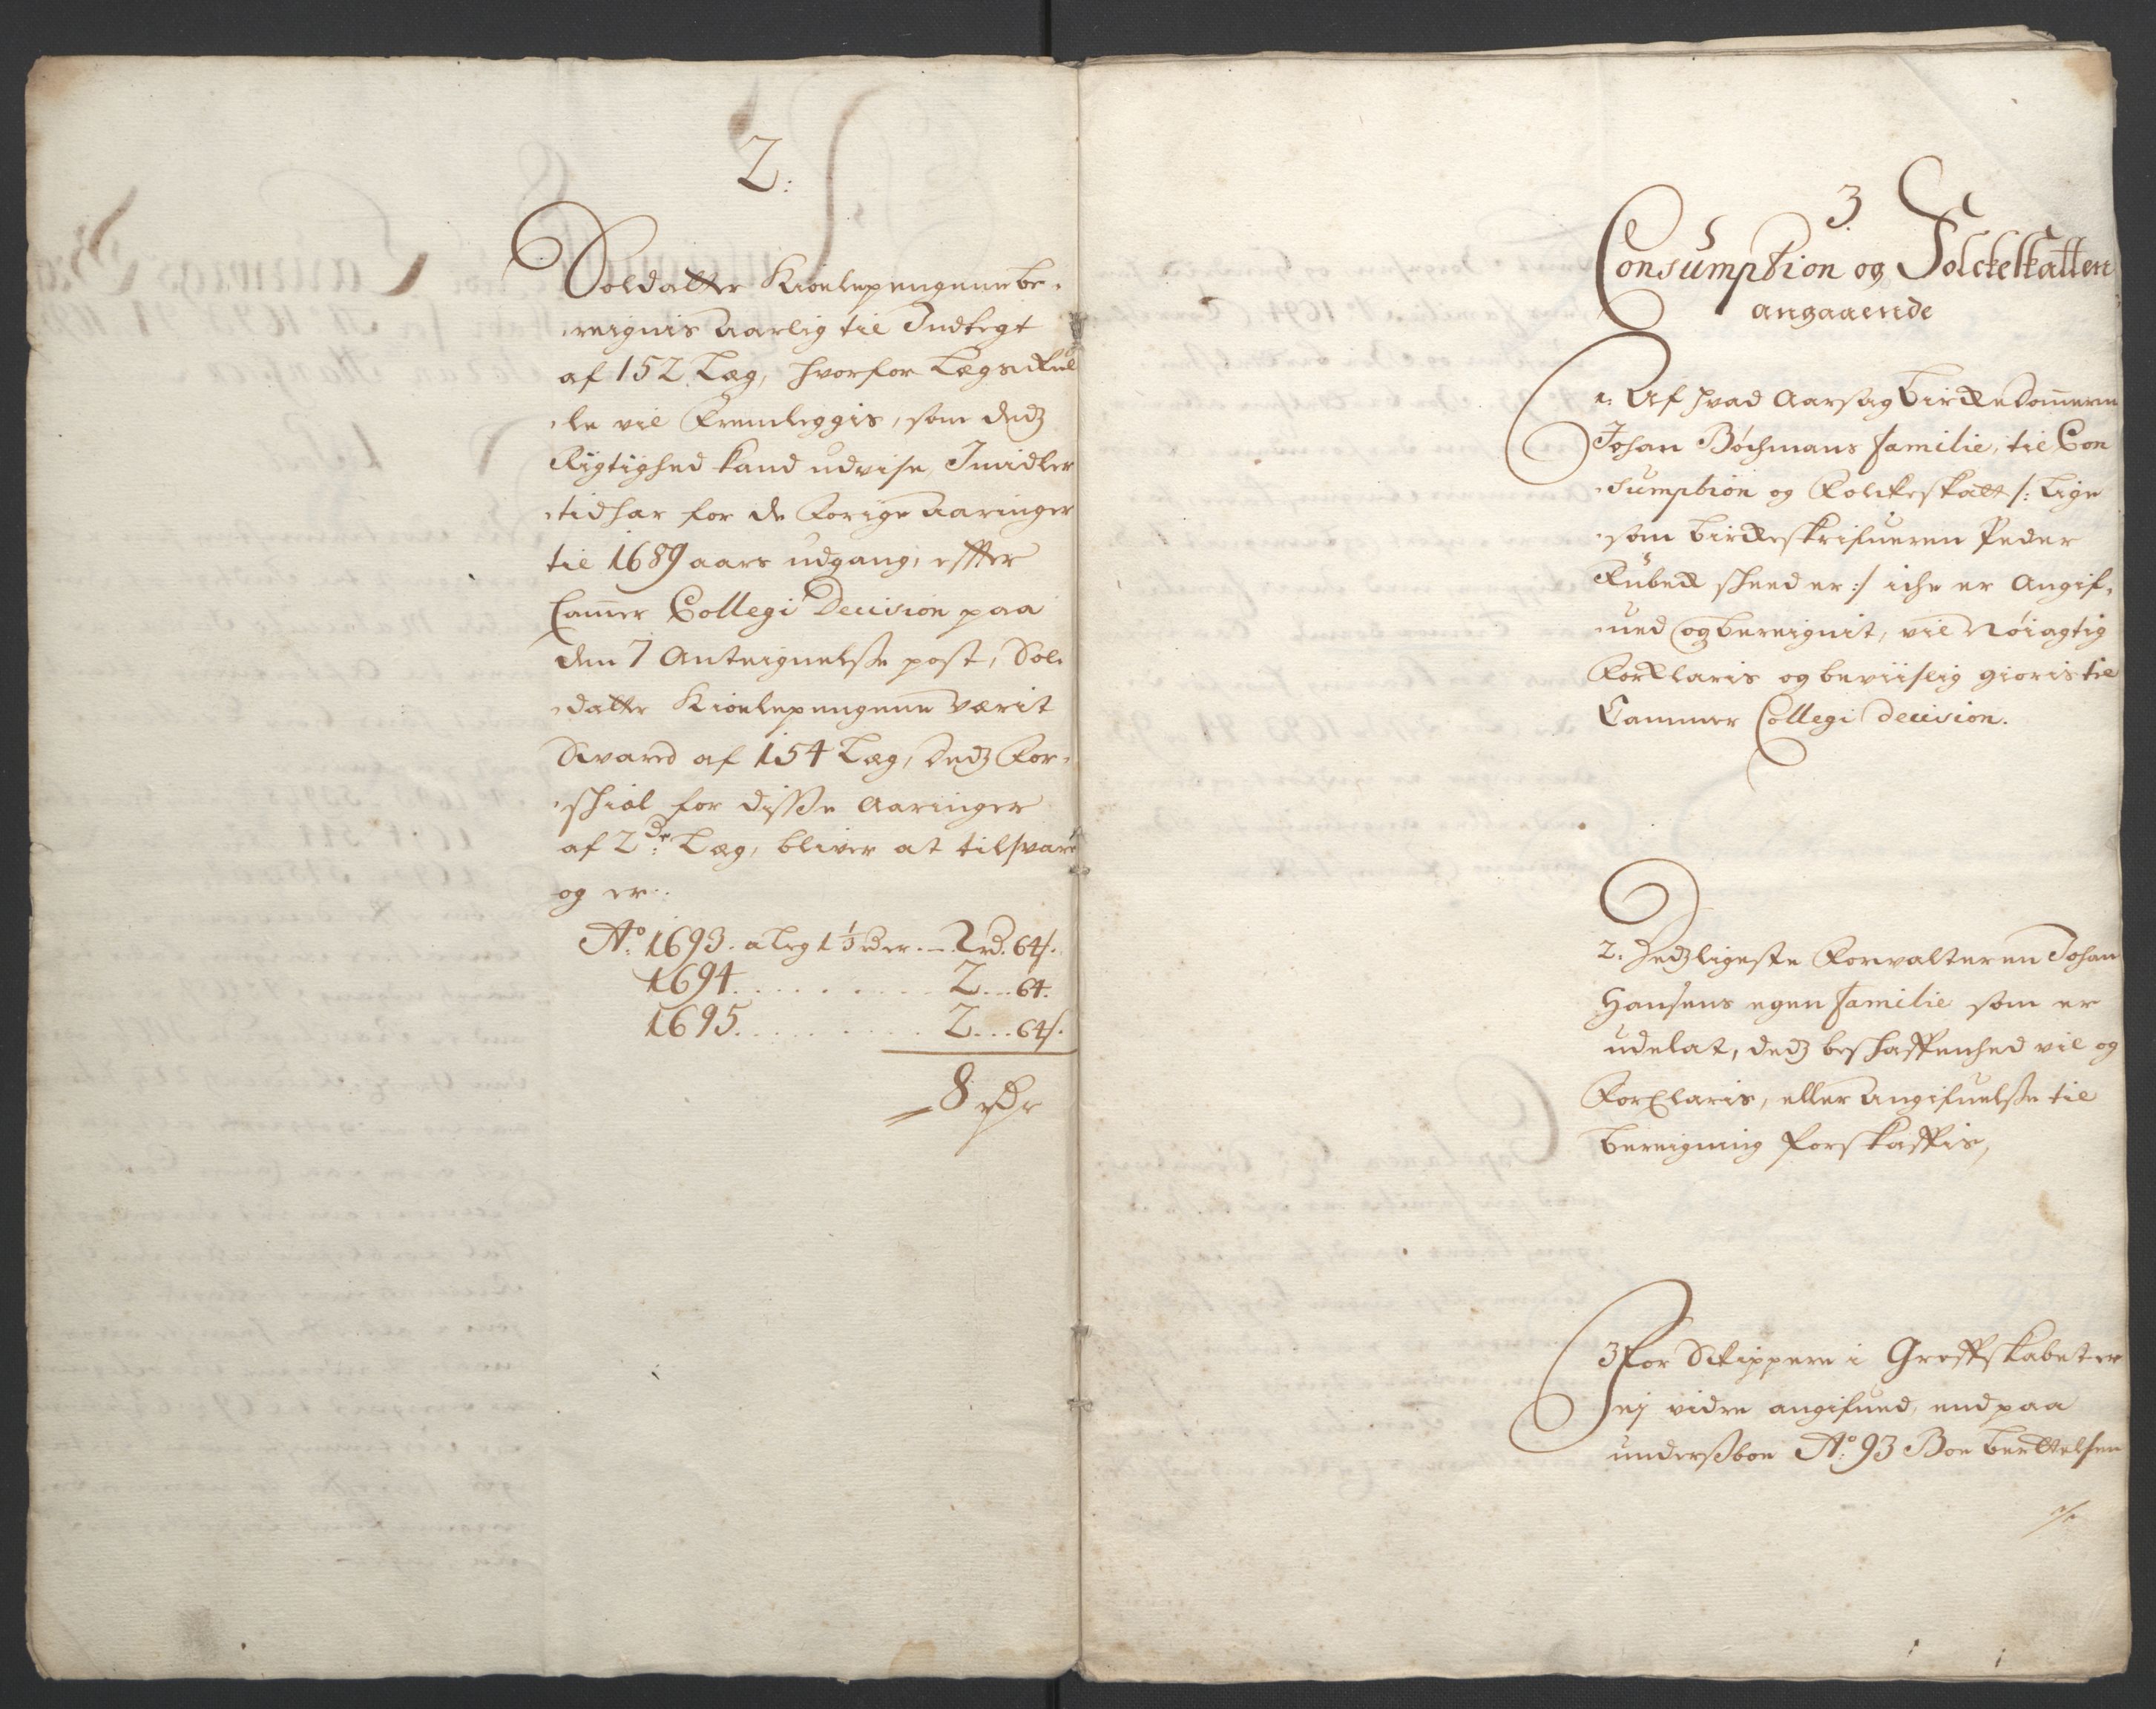 2:
Soldatter Kiolepengene be-
reignis aarlig til Indtegt
af 152 Læg, hvorfor Lægs Rul
le vil Fremleggis, som dedz
Rigtighed kand udvise, Imidler
tid har for de Forige Aaringer
til 1689 aars udgang, effter
Camer Collegi Decision paa
den 7 Anteignelsse post, Sol-
datter Kiolepengene værit
Svared af 154 Læg, Dedz For-
schiæl for disse Aaringer
af 2de Læg, bliver at tilsvare
og er:
Ao 1693. a Leg 1⅓ rdr. – 2 rd. 64 s.
1694. . . . . . . . . 2 . . . 64.
1695. . . . . . . . . 2 . . . 64 s.
8 rdr
3.
Consumption og Folckeskatten
angaaende
1. Af hvad Aarsag Birkedomeren
Johan Bøchmans familie, til Con
sumption og Folckeskatt /: Lige
som Birkeskrifueren Peder
Rubek scheed er :/ iche er Angif-
ued og bereignit, vil Nøiagtig
Forklaris og beviislig gioris til
Cammer Collegi Decision.
2. Dedzligeste Forvalteren Johan
Hansens egen familie som er
udelat, dedz beschaffenhed vil og
Forklaris, eller Angifuelsse til
bereigning forskaffis,
3 For Skippere i Greffskabet er
ej vidre angifued, end paa
undersboe Ao 93 Boe Berttelsen